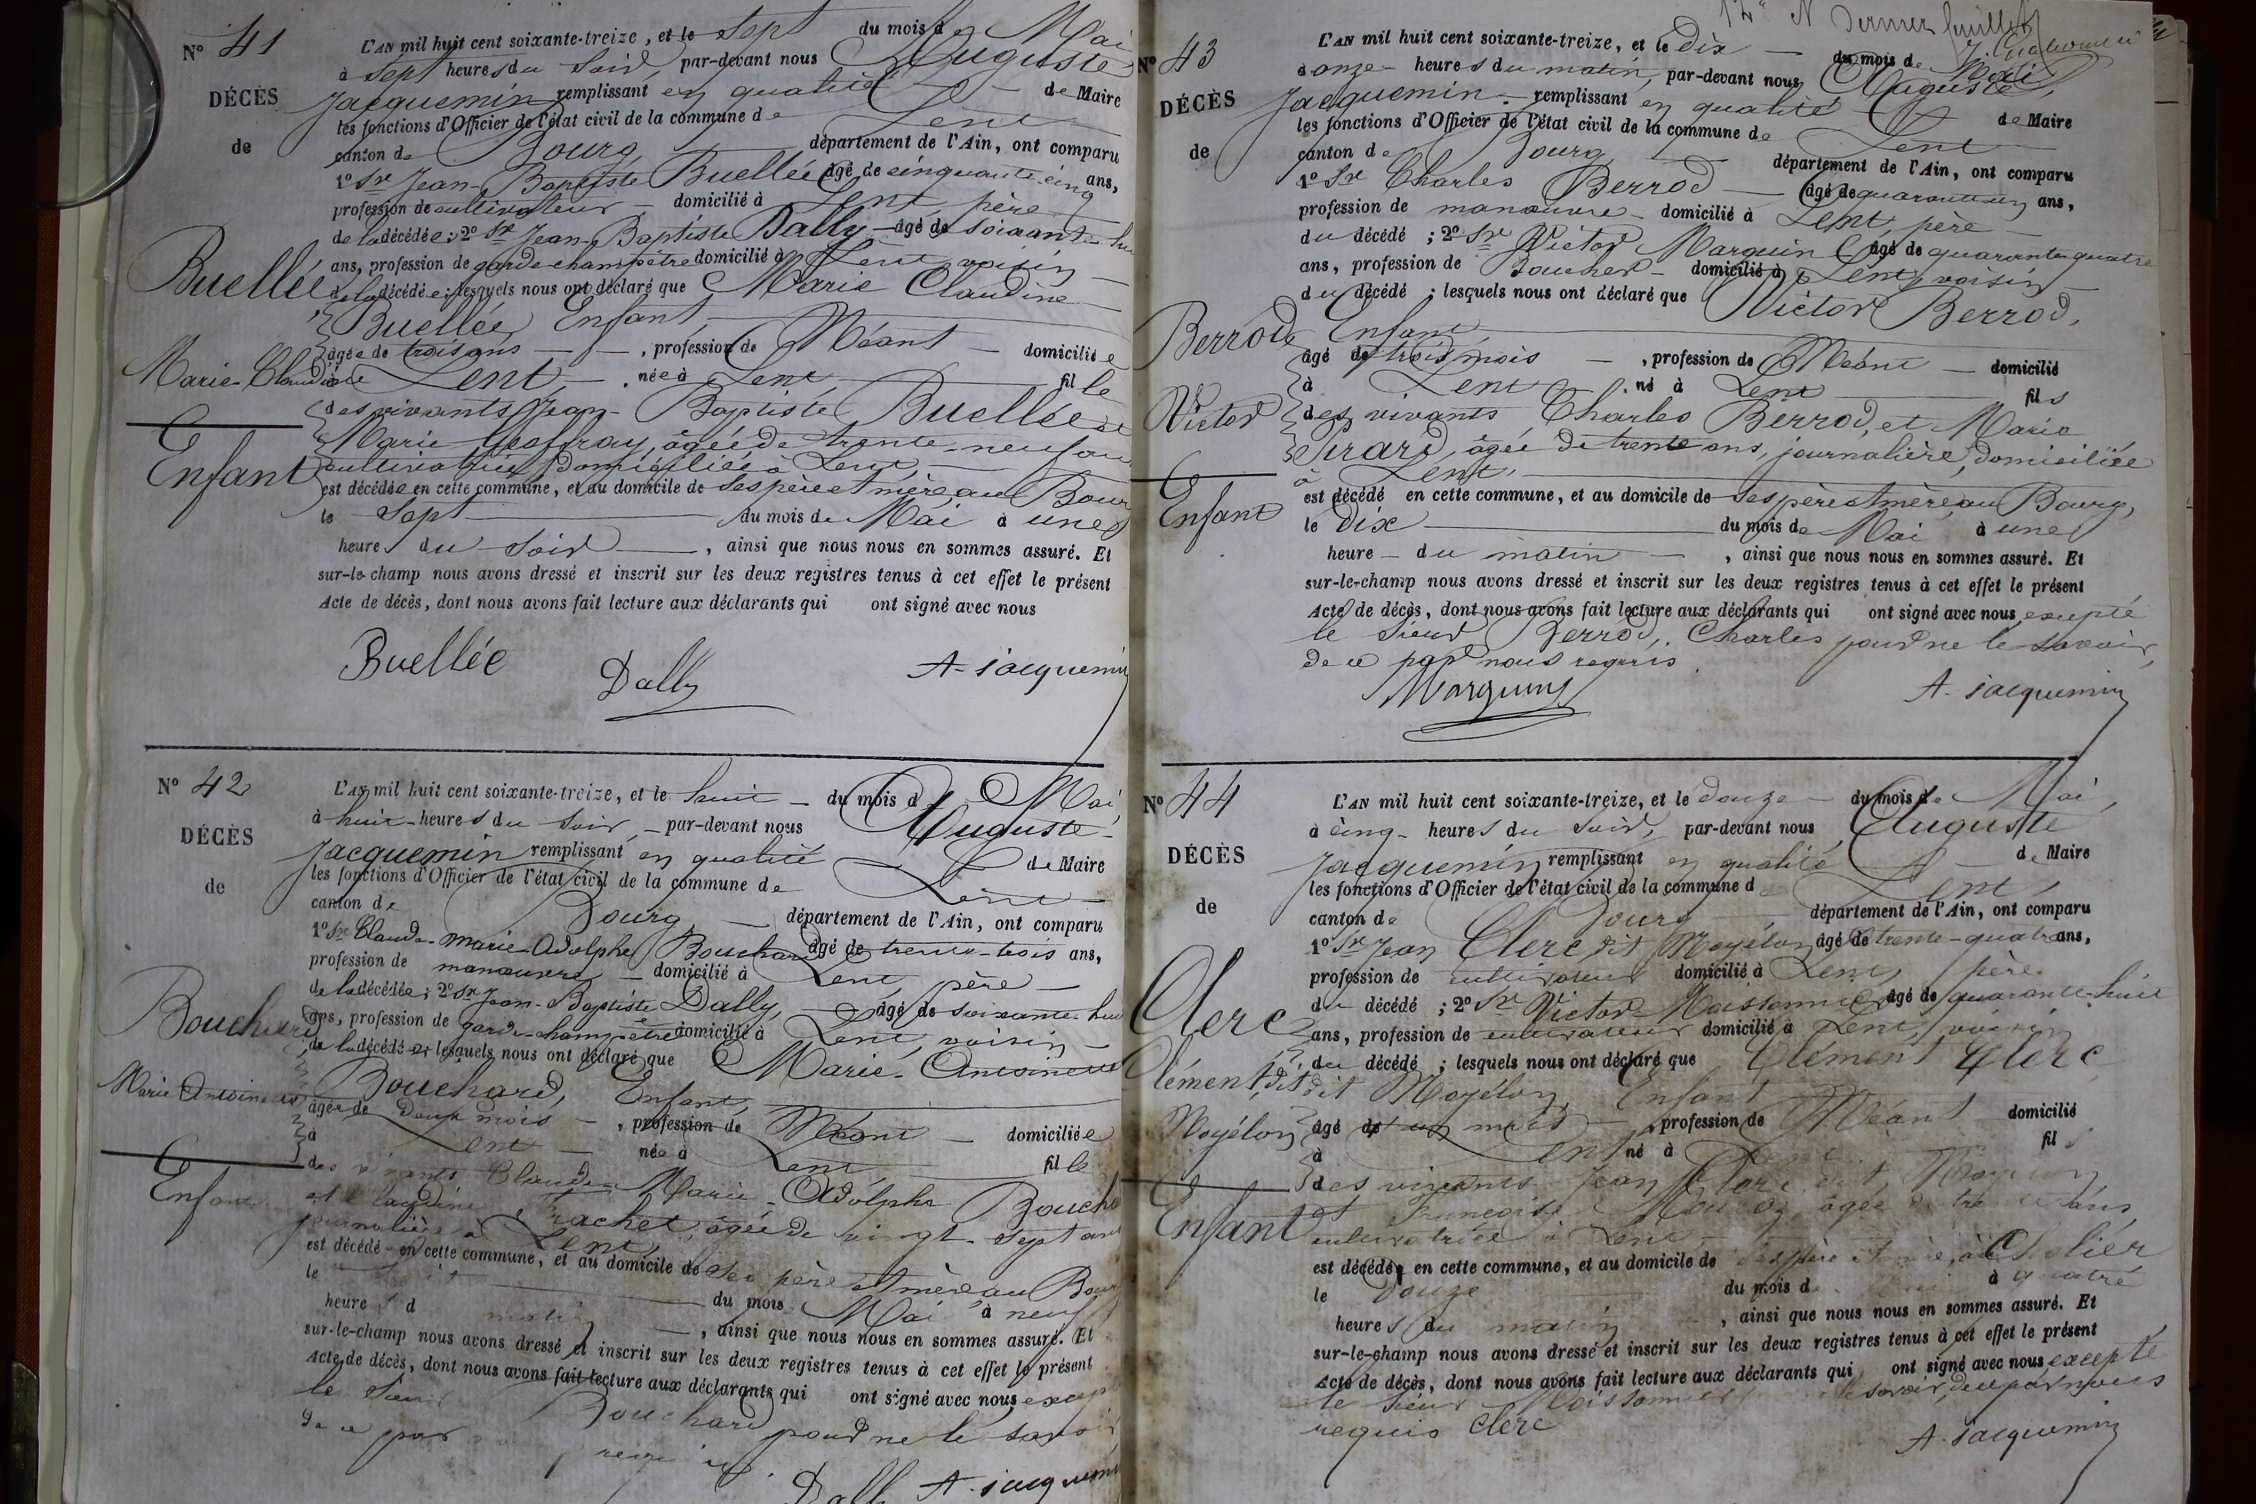 N° 41
DÉCÈS
de
Buellée
Marie-Claudine
Enfant
L'AN mil huit cent soixante-treize, et le sept du mois de Mai
à sept heures du soir, par-devant nous Auguste
Jacquemin remplissant en qualité de Maire
les fonctions d'Officier de l'état civil de la commune de Lent
canton de Bourg département de l'Ain, ont comparu
1° Sr Jean-Baptiste Buellée âgé de cinquante-cinq ans,
profession de cultivateur domicilié à Lent, père
de la décédée; 2° Sr Jean-Baptiste Dally âgé de soixante-hui
ans, profession de garde-champêtre domicilié à Lent, voisin
de la décédée; lesquels nous ont déclaré que Marie Claudine
Buellée, Enfant,
âgée de trois ans, profession de Néant domiciliée
à Lent, née à Lent fille
des vivants Jean-Baptiste Buellée et
Marie Geoffray, âgée de trente-neuf ans
cultivatrice domiciliée à Lent,
est décédée en cette commune, et au domicile de ses père et mère, au Bourg
le sept du mois de Mai à une
heure du soir, ainsi que nous nous en sommes assuré. Et
sur-le-champ nous avons dressé et inscrit sur les deux registres tenus à cet effet le présent
Acte de décès, dont nous avons fait lecture aux déclarants qui ont signé avec nous
Buellée Dally A. Jacquemin
N° 42
DÉCÈS
de
Bouchard
Marie Antoinette
Enfant
L'AN mil huit cent soixante-treize, et le huit du mois de Mai
à huit heures du soir, par-devant nous Auguste
Jacquemin remplissant en qualité de Maire
les fonctions d'Officier de l'état civil de la commune de Lent
canton de Bourg département de l'Ain, ont comparu
1° Sr Claude-Marie-Adolphe Bouchard âgé de trente-trois ans,
profession de manœuvre domicilié à Lent, père
de la décédée; 2° Sr Jean-Baptiste Dally, âgé de soixante-hui
ans, profession de garde-champêtre domicilié à Lent, voisin
de la décédée; lesquels nous ont déclaré que Marie-Antoinette
Bouchard, Enfant,
âgée de deux mois, profession de Néant domiciliée
à Lent née à Lent fille
des vivants Claude-Marie-Adolphe Boucha
et Claudine Trachet, âgée de vingt-sept ans
journalière à Lent,
est décédé en cette commune, et au domicile de ses père et mère, au Bourg
le du mois Mai à neuf
heures d matin, ainsi que nous nous en sommes assuré. Et
sur-le-champ nous avons dressé et inscrit sur les deux registres tenus à cet effet le présent
Acte de décès, dont nous avons fait lecture aux déclarants qui ont signé avec nous except
le sieur Bouchard pour ne le savoir
de ce par requis.
Dally A. Jacquemin
Dernier feuillet
N° 43
DÉCÈS
de
Berrod
Victor
Enfant
L'AN mil huit cent soixante-treize, et le dix du mois de Mai
à onze heures du matin, par-devant nous Auguste
Jacquemin remplissant en qualité de Maire
les fonctions d'Officier de l'état civil de la commune de Lent
canton de Bourg département de l'Ain, ont comparu
1° Sr Charles Berrod âgé de quarante-un ans,
profession de manœuvre domicilié à Lent, père
du décédé; 2° Sr Victor Marguin âgé de quarante-quatre
ans, profession de Boucher domicilié à Lent, voisin
du décédé; lesquels nous ont déclaré que Victor Berrod,
Enfant
âgé de trois mois, profession de Néant domicilié
à Lent né à Lent fils
des vivants Charles Berrod, et Marie
Girard, âgée de trente ans, journalière, domiciliée
à Lent,
est décédé en cette commune, et au domicile de ses père et mère, au Bourg,
le dix du mois de Mai à une
heure du matin, ainsi que nous nous en sommes assuré. Et
sur-le-champ nous avons dressé et inscrit sur les deux registres tenus à cet effet le présent
Acte de décès, dont nous avons fait lecture aux déclarants qui ont signé avec nous, excepté
le sieur Berrod, Charles pour ne le savoir,
de ce par nous requis.
Marguin A. Jacquemin
N° 44
DÉCÈS
de
Clerc
Clément, dit
Moyélon
Enfant
L'AN mil huit cent soixante-treize, et le douze du mois de Mai,
à cinq heures du soir, par-devant nous Auguste
Jacquemin remplissant en qualité de Maire
les fonctions d'Officier de l'état civil de la commune d Lent,
canton de Bourg département de l'Ain, ont comparu
1° Sr Jean Clerc, dit Moyélon âgé de trente-quatre ans,
profession de cultivateur domicilié à Lent, père
du décédé; 2° Sr Victor Moissonnier âgé de quarante-huit
ans, profession de cultivateur domicilié à Lent, voisin
du décédé; lesquels nous ont déclaré que Clément Clerc
dit Moyélon, Enfant
âgé d'un mois profession de Néant domicilié
à Lent né à Lent fils
des vivants Jean Clerc dit Moyélon
et Françoise âgée de ans,
cultivatrice à Lent
est décédé en cette commune, et au domicile de ses père et mère, à
le douze du mois d Mai à quatre
heures du matin, ainsi que nous nous en sommes assuré. Et
sur-le-champ nous avons dressé et inscrit sur les deux registres tenus à cet effet le présent
Acte de décès, dont nous avons fait lecture aux déclarants qui ont signé avec nous excepté
le sieur Moissonnier le savoir, de ce par nous
requis Clerc A. Jacquemin